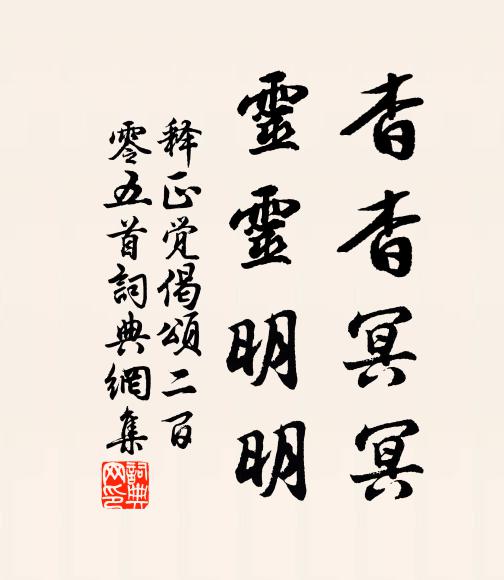 杳杳冥冥
靈靈明明
释正觉偈頌二百
零五首詞典網集
詞典
网印